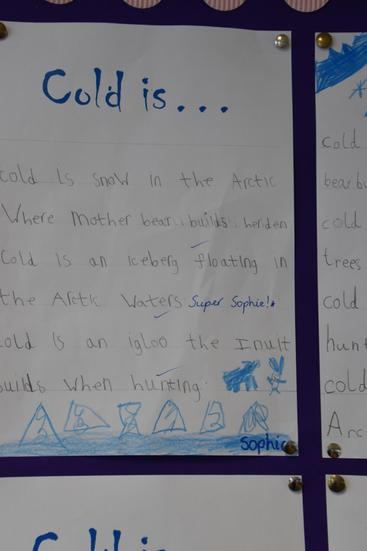 Cold is...
cold Is snow in the Arctic
Where Mother bear builds her den
Cold Is an Iceberg floating in
the Arctic Waters Super Sophie!
cold Is an igloo the Inuit
builds when hunting.
Sophie
cold
bear bu
cold
trees
cold
hunt
cold
Arc
Cold is